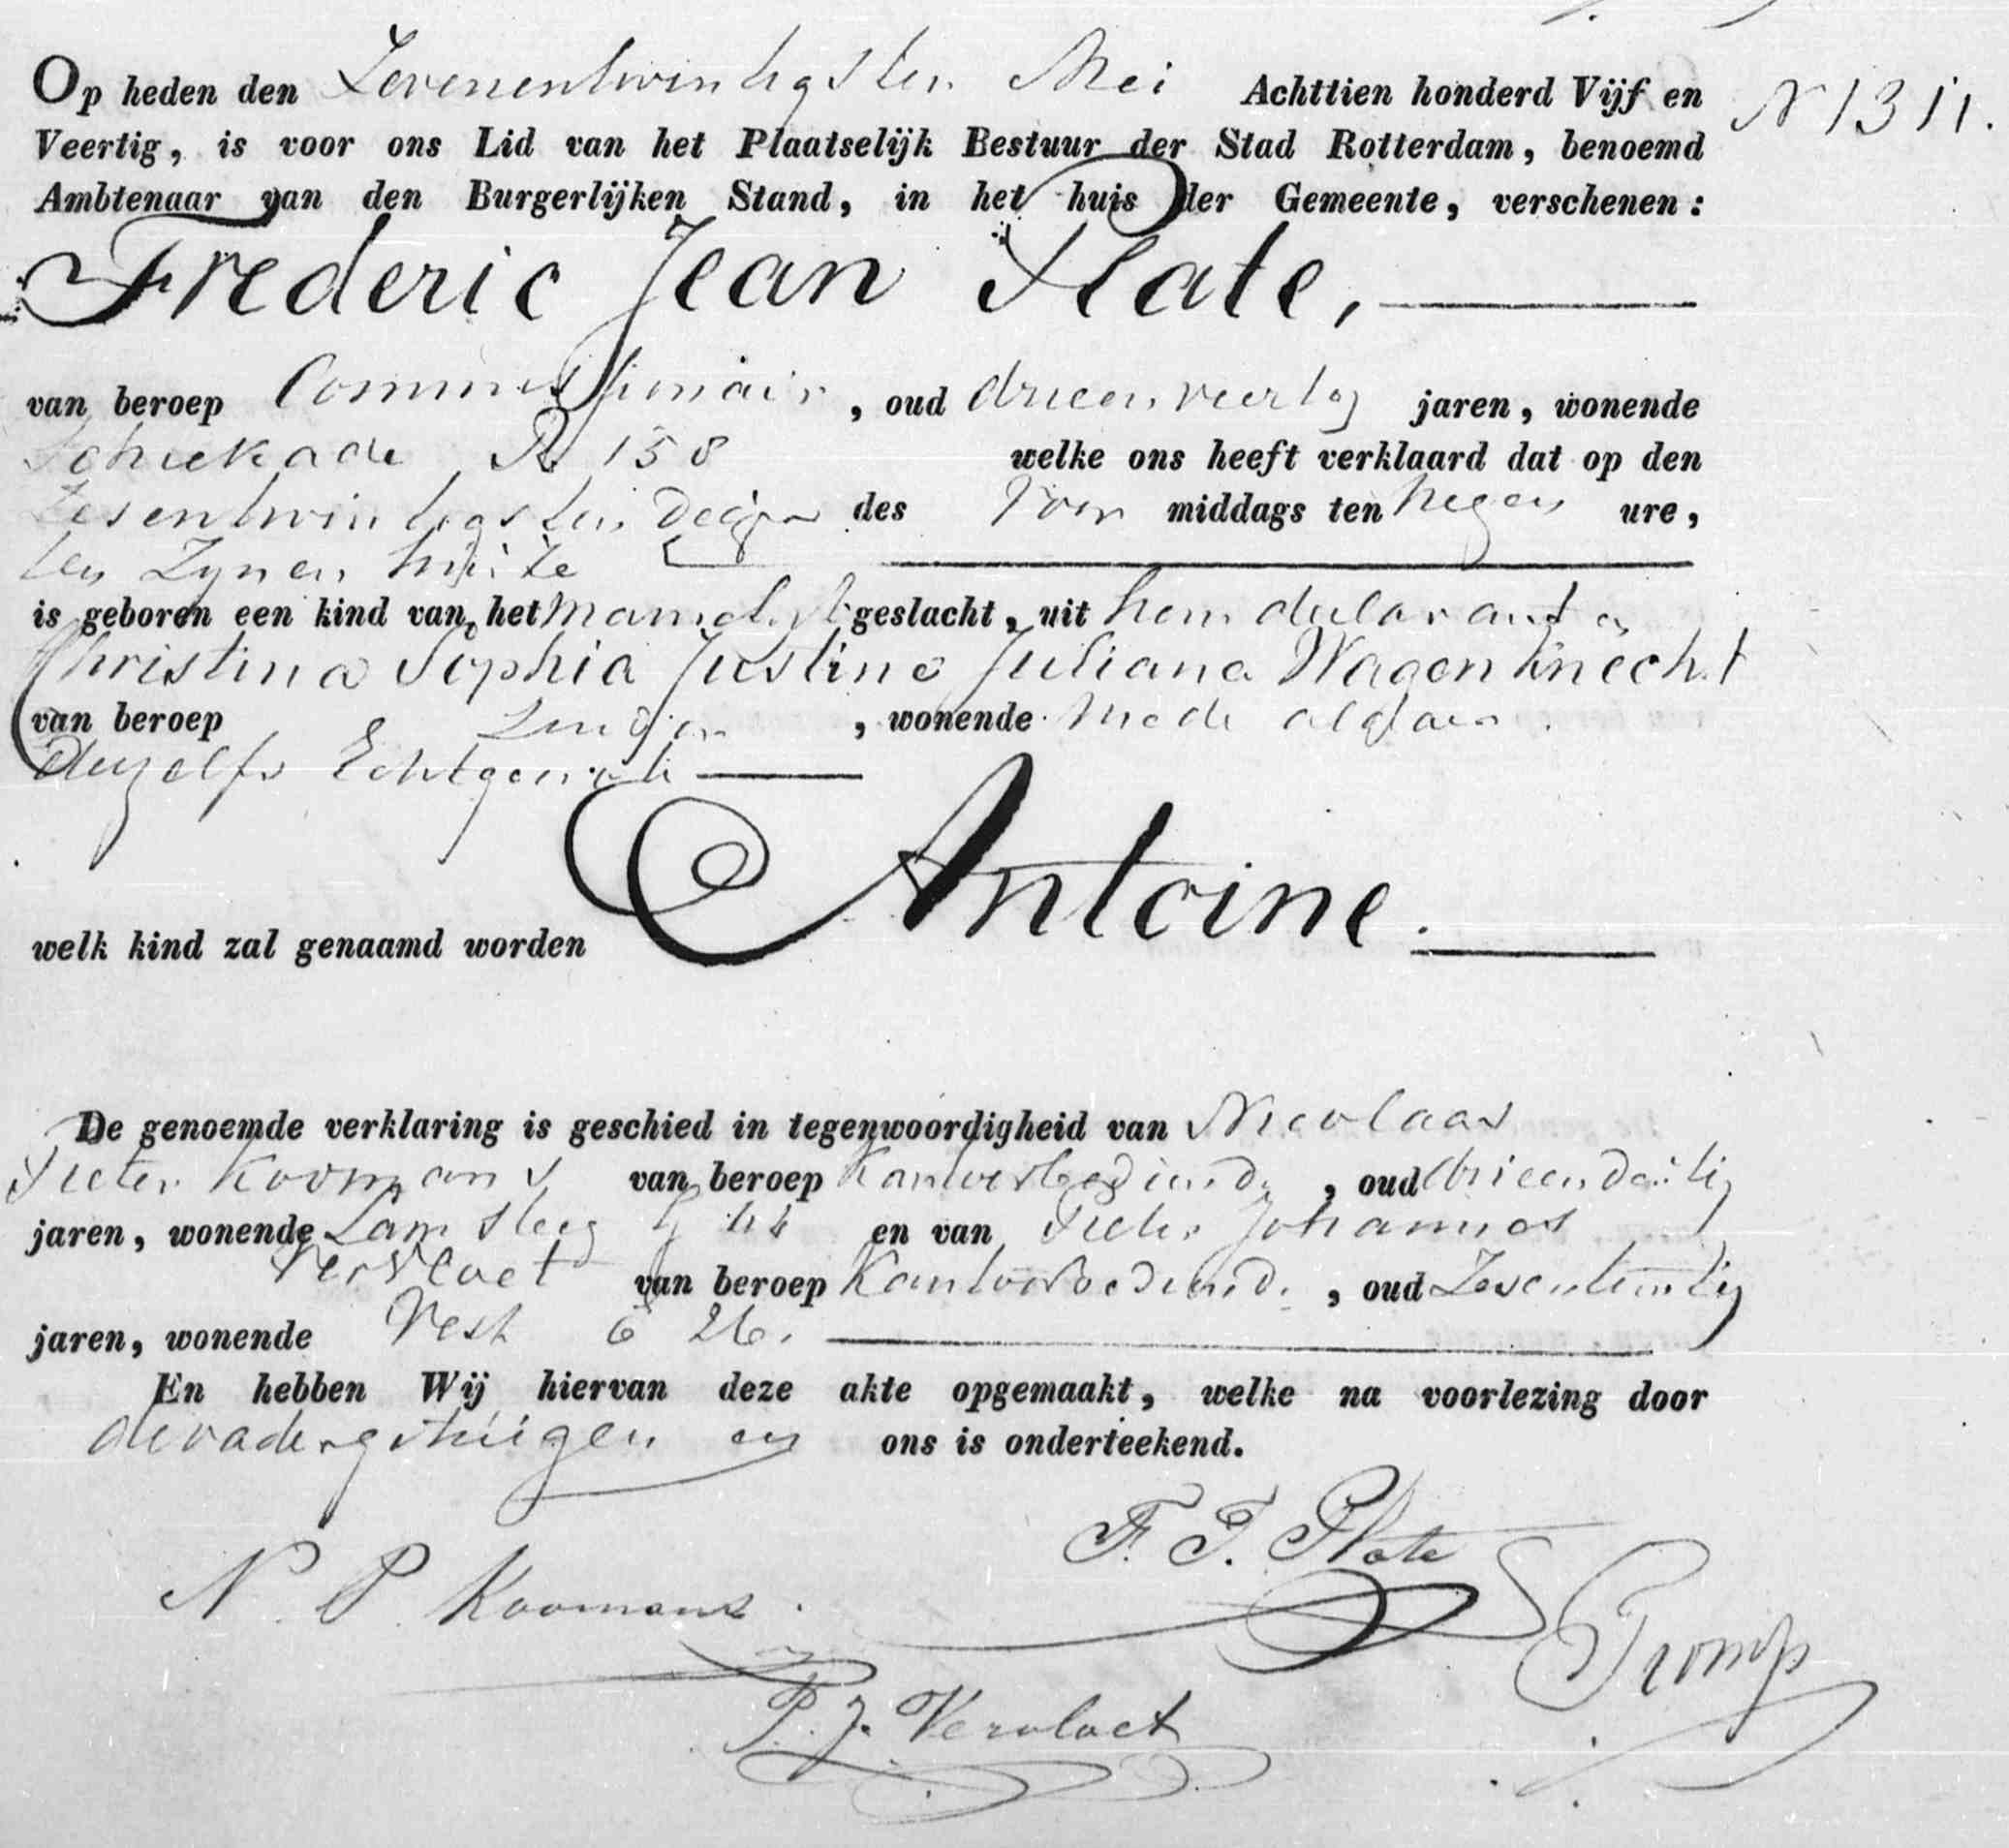 Op heden den Zevenentwintigsten Mei Achttien honderd Vijf en
N 1311.
Veertig, is voor ons Lid van het Plaatselijk Bestuur der Stad Rotterdam, benoemd
Ambtenaar van den Burgerlijken Stand, in het huis der Gemeente, verschenen:
Frederic Jean Plate,
van beroep Commissionair, oud drieenveertig jaren, wonende
Schiekade R 158 welke ons heeft verklaard dat op den
Zesentwintigsten dezer des Voor middags ten negen ure,
ten Zynen huize
is geboren een kind van het mannelyk geslacht, uit hem declarant en
Christina Sophia Justine Juliana Wagenknecht
van beroep zonder, wonende mede aldaar.
deszelfs Echtgenoote
welk kind zal genaamd worden Antoine.
De genoemde verklaring is geschied in tegenwoordigheid van Nicolaas
Pieter Koomans van beroep Kantoorbediende, oud drieendertig
jaren, wonende Lamsteeg en van Pieter Johannes
Vervloet van beroep Kantoorbediende, oud Zesentwintig
jaren, wonende Vest 6 26.
En hebben Wij hiervan deze akte opgemaakt, welke na voorlezing door
de vader getuigen en ons is onderteekend.
F. J. Plate
N P Koomans.
Tromp
P. J. Vervloet